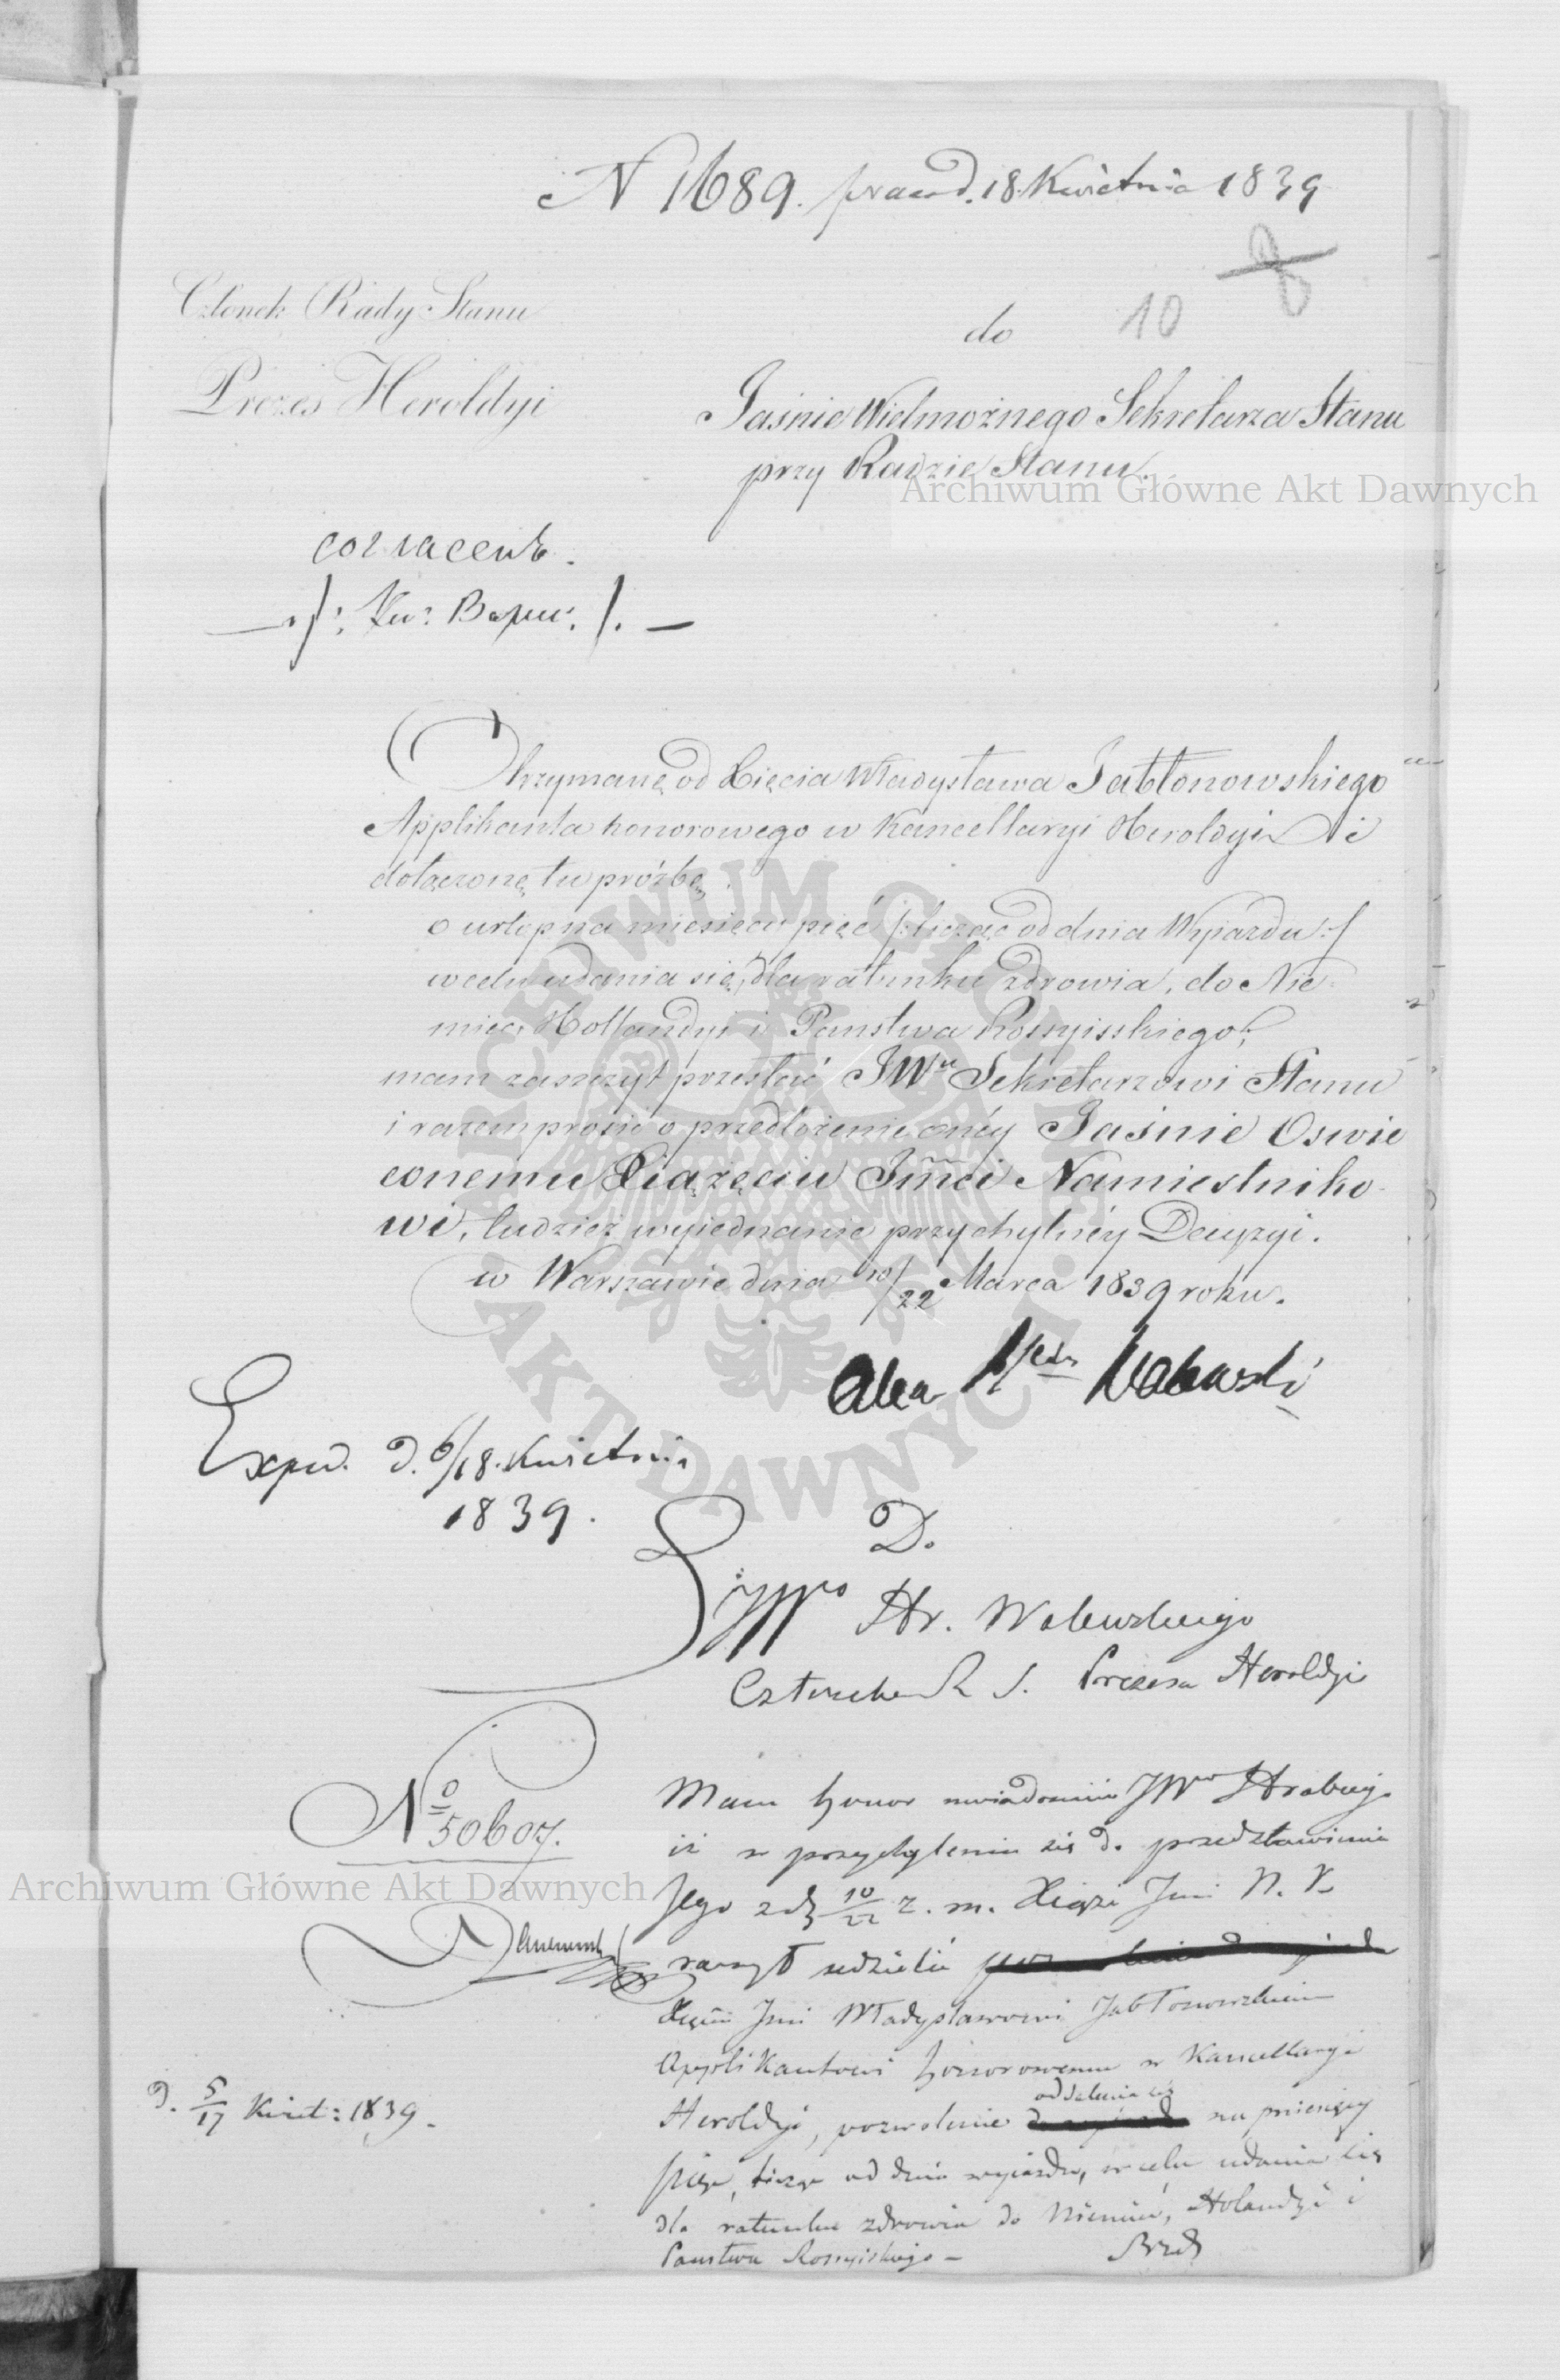 N 1689. praes d. 18 Kwietnia 1839
8
10
Członek Rady Stanu
Prezes Heroldyi
do
Jaśnie Wielmożnego Sekretarza Stanu
przy Radzie Stanu.
Archiwum Główne Akt Dawnych
согласенъ.
Otrzymaną od Xięcia Władysława Jabłonowskiego
Applikanta honorowego w Kancellaryi Heroldyi i
dołączoną tu próźbę,
o urlop na miesięcy pięć /:licząc od dnia Wyjazdu:/
w celu udania się, dla ratunku zdrowia, do Nie-
miec, Hollandyi i Państwa Rossyiskiego;
mam zaszczyt przesłać JWu Sekretarzowi Stanu
i razem prosić o przedłożenie onéy Jaśnie Oswie
conemu Xiążęciu Jmci Namiestniko-
wi, tudzież wyiednanie przychylnéy Decyzyi.
w Warszawie dnia 10/22 Marca 1839 roku.
Alex Walewski
Exped. d. 6/18 Kwietnia
1839.
D.
JWo Hr. Walewskiego
Członka R S. Prezesa Heroldyi
No 50607.
Mam honor uwiadomić JWo Hrabiego
iż w przychyleniu się do przedstawienia
Jego z d. 10/22 z. m. Xiąże Jmci N. K.
raczył udzielić
Xięciu Jmci Władysławowi Jabłonowskiemu
Applikantowi honorowemu w Kancellaryi
oddalenia się
Heroldyi, pozwolenie na miesięcy
pięć, licząc od dnia wyjazdu, w celu udania się
dla ratunku zdrowia do Niemiec, Holandyi i
Państwa Rossyiskiego –
d. 5/17 Kwiet: 1839.
Archiwum Główne Akt Dawnych
ARCHIWUM GŁÓWNE AKT DAWNYCH